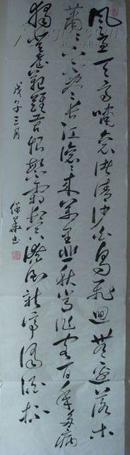 風急天高猿嘯哀渚清沙白鳥飛迴無邊落木
蕭蕭下不盡長江滾滾來萬里悲秋常作客百年多病
獨登臺艱難苦恨繁霜鬢潦倒新停濁酒杯
戊午三月